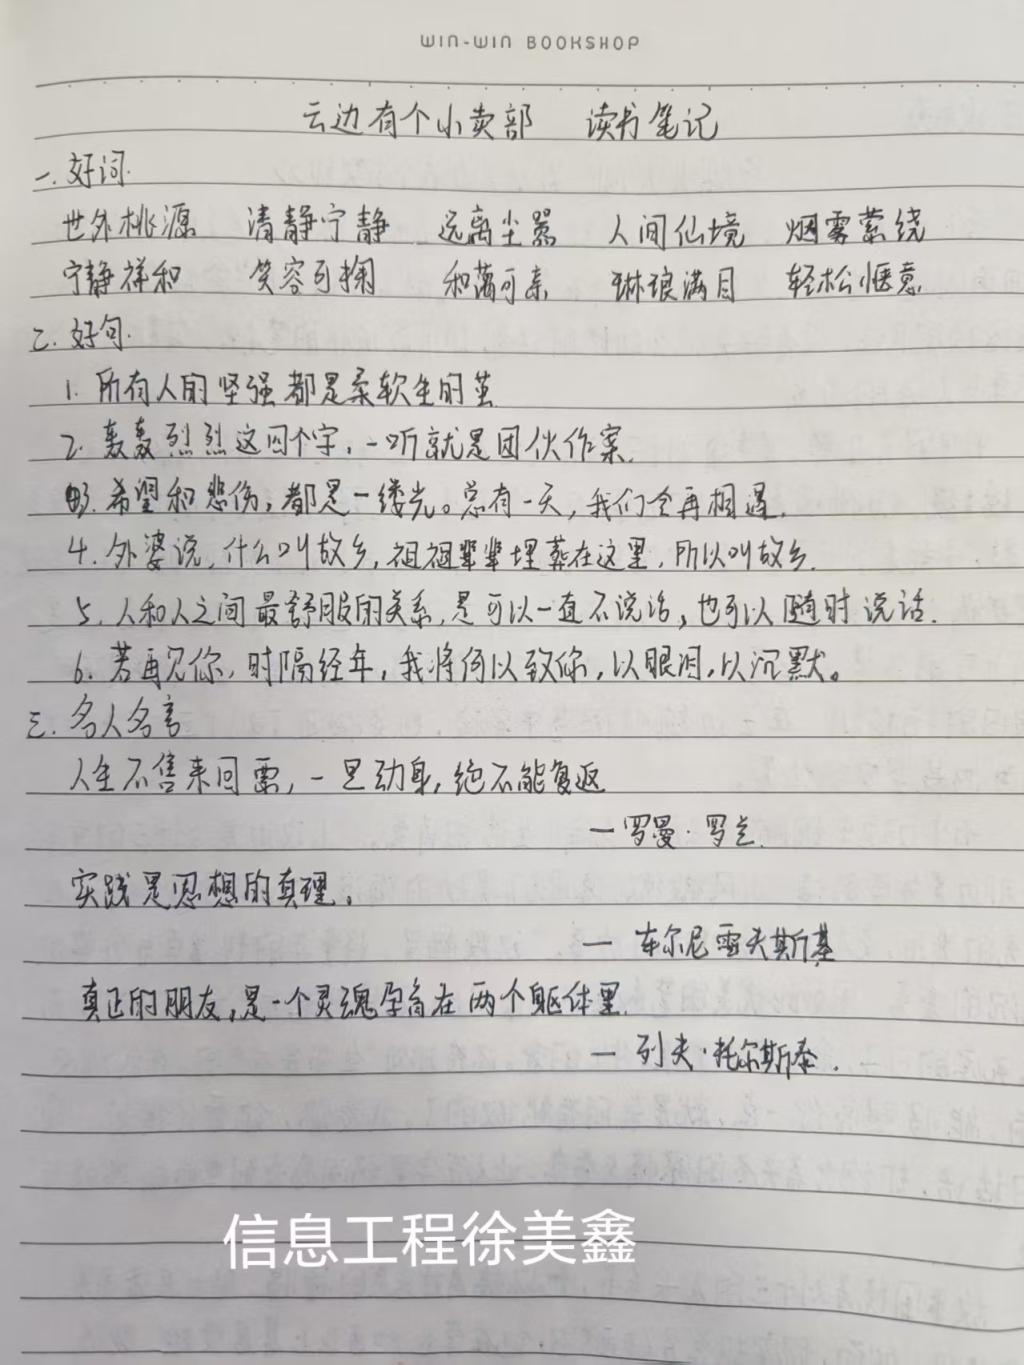 WIN-WIN BOOKSHOP
云边有个小卖部 读书笔记
一. 好词.
世外桃源 清静宁静 远离尘嚣 人间仙境 烟雾萦绕
宁静祥和 笑容可掬 和蔼可亲 琳琅满目 轻松惬意
二. 好句.
1. 所有人的坚强都是柔软生的茧
2. 轰轰烈烈这四个字,一听就是团伙作案.
希望和悲伤,都是一缕光。总有一天,我们会再相遇.
4. 外婆说,什么叫故乡,祖祖辈辈埋葬在这里,所以叫故乡.
5. 人和人之间最舒服的关系,是可以一直不说话,也可以随时说话.
6. 若再见你,时隔经年,我将何以致你,以眼泪,以沉默。
三. 名人名言
人生不售来回票,一旦动身,绝不能复返
— 罗曼·罗兰.
实践是思想的真理。
— 车尔尼雪夫斯基
真正的朋友,是一个灵魂孕育在两个躯体里.
— 列夫·托尔斯泰.
信息工程徐美鑫